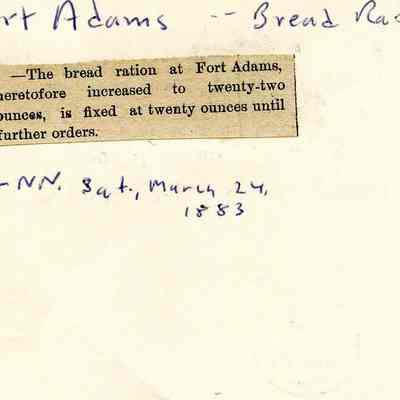 rt Adams -- Bread Ra
—The bread ration at Fort Adams,
heretofore increased to twenty-two
ounces, is fixed at twenty ounces until
further orders.
- NN. Sat., March 24,
1883